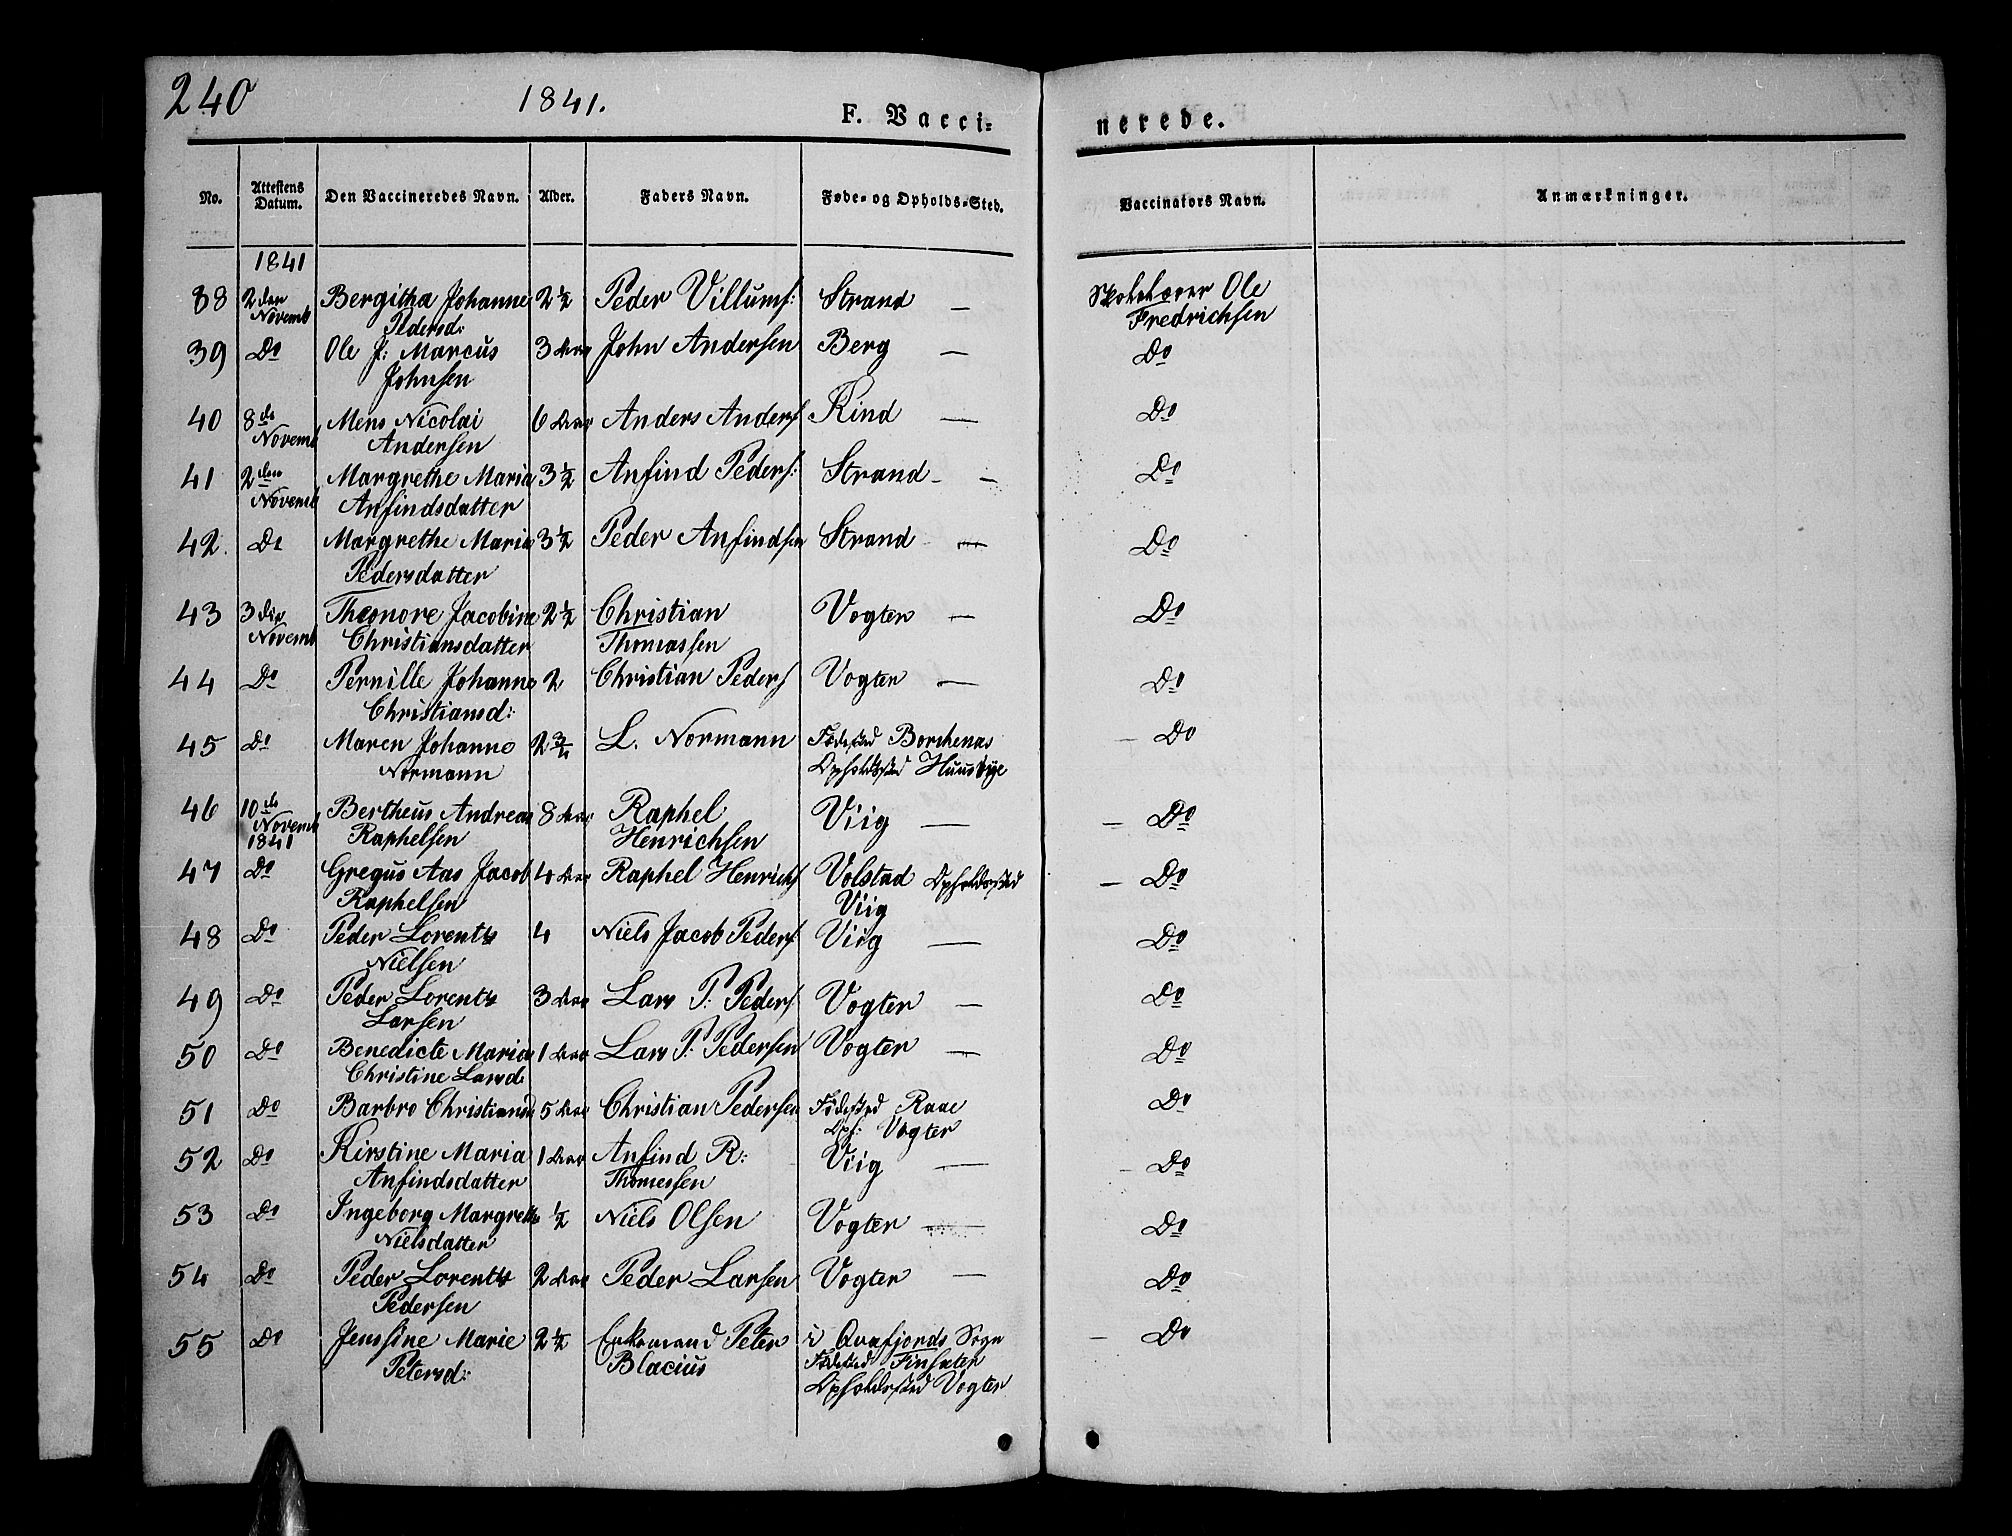 240
1841.
F. Vacci=
nerede.
No. Attestens Datum. Den Vaccineredes Navn. Alder. Faders Navn. Føde- og Opholds-Sted. Vaccinators Navn. Anmærkninger.
1841
38 2den Bergitha Johanne 2½ Peder Villums: Strand — Skolelærer Ole
Novemb Pedersd: Fredrichsen
39 Do Ole J: Marcus 3 Aar John Andersen Berg — Do
Johnsen
40 8de Mens Nicolai 6 Aar Anders Anders Kind — Do
Novemb Andersen
41 2den Margrethe Maria 3½ Anfind Peders: Strand — Do
Novemb Anfindsdatter
42. Do Margrethe Maria 3½ Peder Anfindsen Strand — Do
Pedersdatter
43 3die Theonore Jacobine 2½ Christian Vogter — Do
Novemb Christiansdatter Thomassen
44 Do Pernille Johanne 2 Christian Peders Vogter — Do
Christiansd:
45 Do Maren Johanne 2¾ L. Normann Fødested Borkenes — Do
Normann Opholdssted Huusbye
46 10de Bertheus Andreas 8 Aar Raphel Viig — — Do
Novemb Raphelsen Henrichsen
1841
47 Do Gregus Aas Jacob 4 Aar Raphel Henrichs Volstad Opholdssted — Do
Raphelsen Viig
48 Do Peder Lorents 4 Niels Jacob Peders: Viig — Do
Nielsen
49 Do Peder Lorents 3 Aar Lars P: Peders Vogter — Do
Larsen
50 Do Benedicte Maria 1 Aar Lars P: Pedersen Vogter — Do
Christine Larsd:
51 Do Barbro Christiansd 5 Aar Christian Pedersen Fødested Raae Do
Oph: Vogter
52 Do Kirstine Maria 1 Aar Anfind R: Viig — — Do
Anfindsdatter Thomessen
53 Do Ingeborg Margrethe ½ Niels Olsen Vogter — Do
Nielsdatter
54 Do Peder Lorents 2 Aar Peder Larsen Vogter — Do
Pedersen
55 Do Jenssine Marie 2½ Enkemand Peter i Qvæfjords Sogn — Do
Petersd: Blacius Fødested Finsæter
Opholdssted Vogter